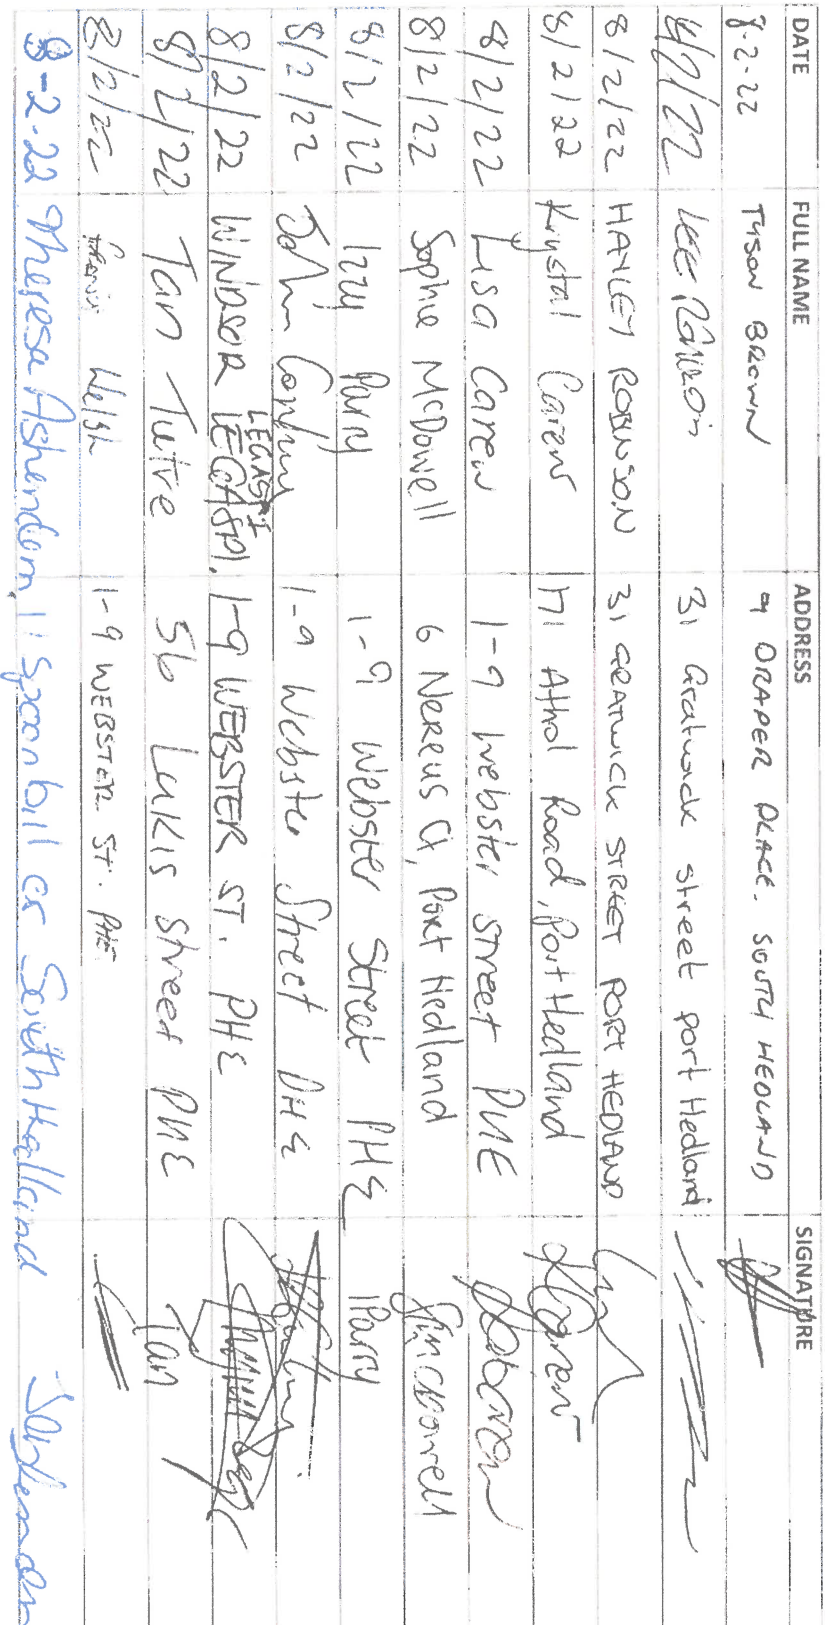 DATE FULL NAME ADDRESS SIGNATURE
8-2-22 TYSON BROWN 9 DRAPER PLACE. SOUTH HEDLAND
8/2/22 LEE 31 Gratwick street port Hedland
8/2/22 HAYLEY ROBINSON 31 GRATWICK STREET PORT HEDLAND
8/2/22 Krystal Carew 171 Athol Road, Port Hedland
8/2/22 Lisa Carew 1-9 Webster street PHE
8/2/22 Sophie McDowell 6 Nereus Ct, Port Hedland SMcDowell
8/2/22 Izzy Parry 1-9 Webster Street PHE IParry
8/2/22 John 1-9 Webster Street PHE
8/2/22 WINDSOR LEGASPI LEGASPI. 1-9 WEBSTER ST. PHE
8/2/22 Tan Tutre 56 Lukis street PHE Tan
8/2/22 Welsh 1-9 WEBSTER ST. PHE
8-2-22 Theresa Ashendem, 11 Spoonbill cr South Hedland